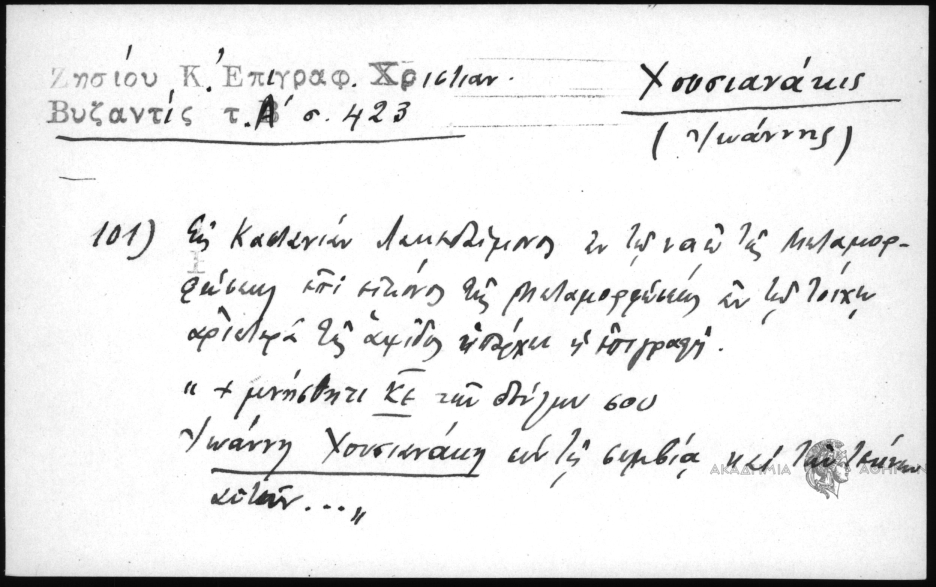 Ζησίου Κ. Ἐπιγραφ. Χριστιαν.
Βυζαντίς τ. Α΄ σ. 423
Χουσιανάκης
(Ἰωάννης)
101) Εἰς Καστανιὰν Λακεδαίμονος ἐν τῷ ναῷ τῆς Μεταμορ-
φώσεως ἐπὶ εἰκόνος τῆς Μεταμορφώσεως ἐν τῷ τοίχῳ
ἀριστερὰ τῆς ἁψῖδος ὑπάρχει ἡ ἐπιγραφή.
„ + μνήσθητι ΚΕ τῶν δούλων σου
Ἰωάννη Χουσιανάκη σὺν τῆς συμβίας καὶ τῶν τέκνων
αὐτῶν...„
ΑΚΑΔΗΜΙΑ ΑΘΗΝΩΝ